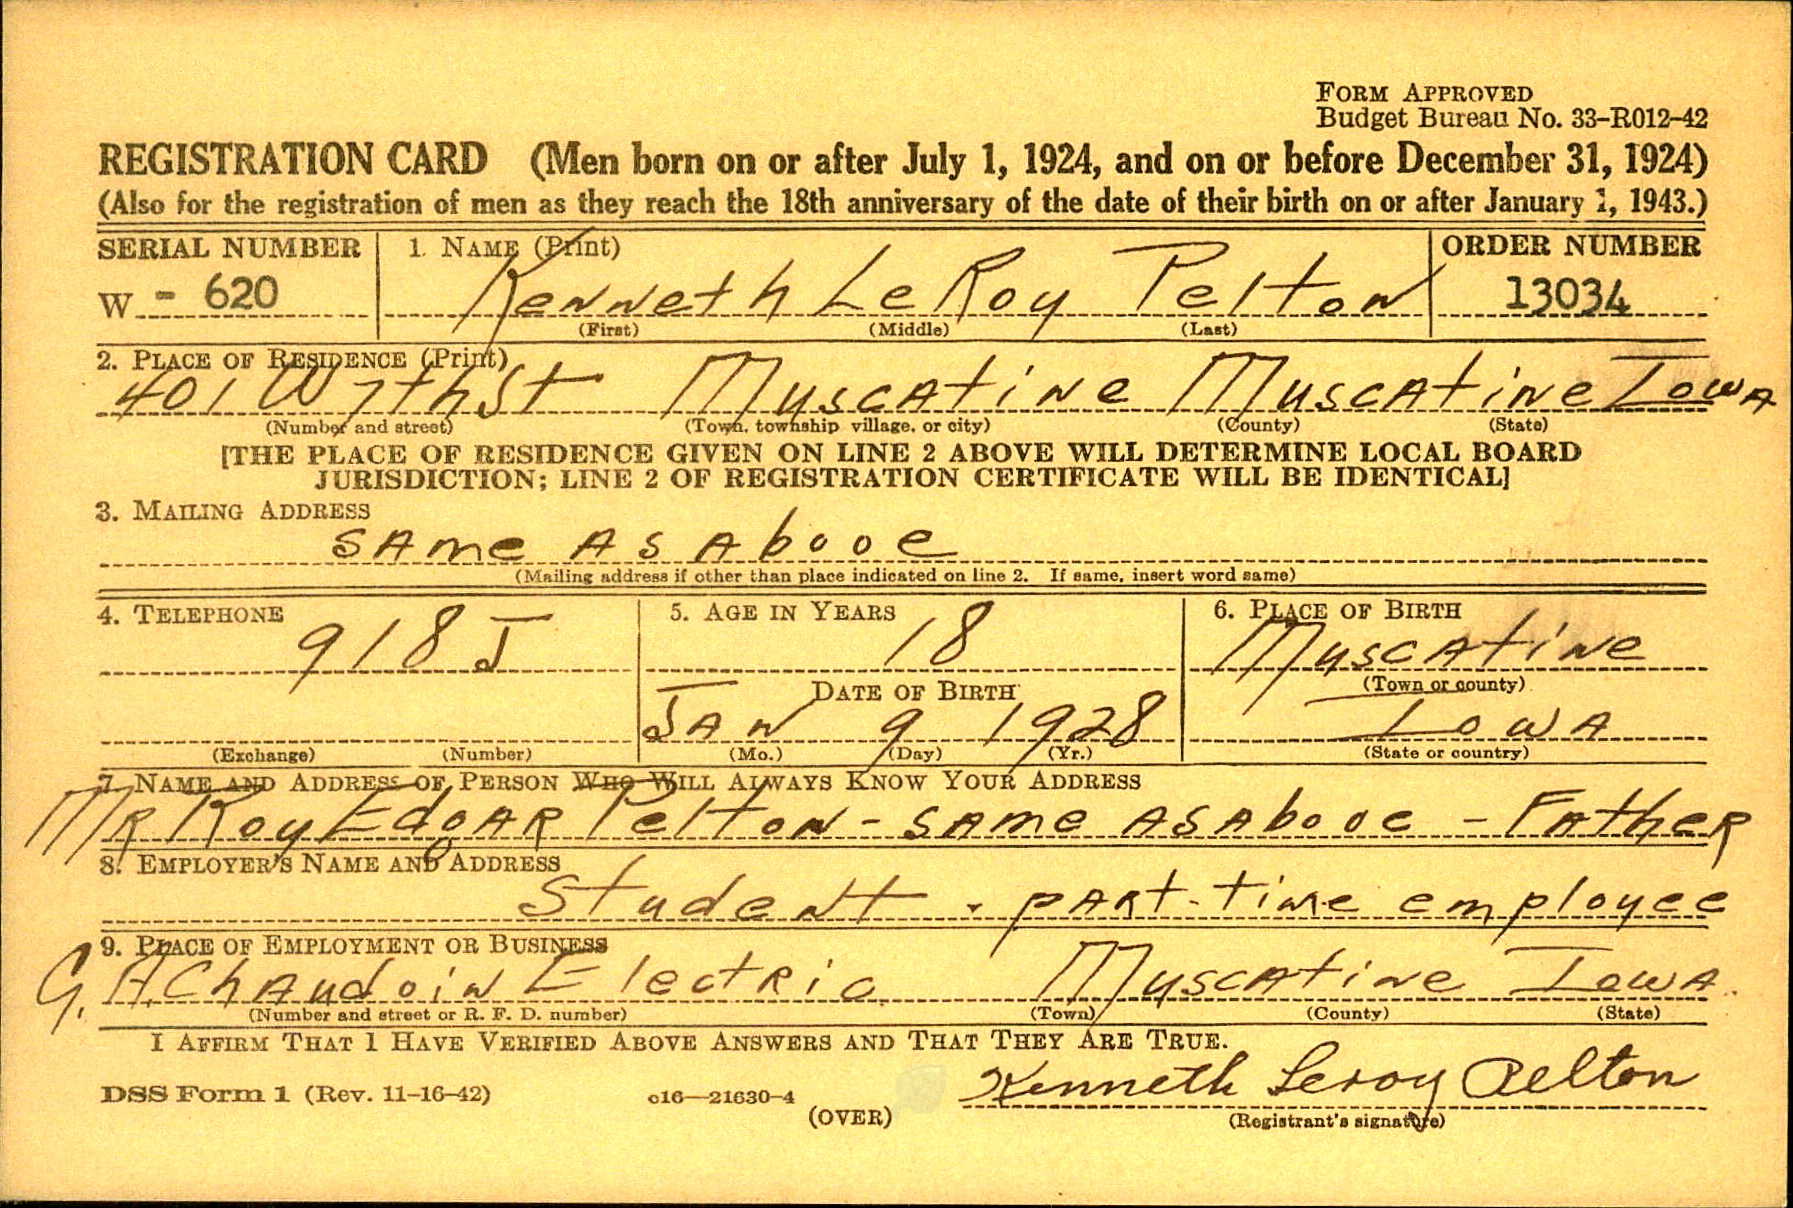 FORM APPROVED
Budget Bureau No. 33-R012-42
REGISTRATION CARD (Men born on or after July 1, 1924, and on or before December 31, 1924)
(Also for the registration of men as they reach the 18th anniversary of the date of their birth on or after January 1, 1943.)
SERIAL NUMBER 1. NAME (Print) ORDER NUMBER
W - 620 Kenneth LeRoy Pelton 13034
(First) (Middle) (Last)
2. PLACE OF RESIDENCE (Print)
401 W 7th St Muscatine Muscatine Iowa
(Number and street) (Town, township village, or city) (County) (State)
[THE PLACE OF RESIDENCE GIVEN ON LINE 2 ABOVE WILL DETERMINE LOCAL BOARD
JURISDICTION; LINE 2 OF REGISTRATION CERTIFICATE WILL BE IDENTICAL]
3. MAILING ADDRESS
same as above
(Mailing address if other than place indicated on line 2. If same, insert word same)
4. TELEPHONE 5. AGE IN YEARS 6. PLACE OF BIRTH
918 J 18 Muscatine
DATE OF BIRTH (Town or county)
Jan 9 1928 Iowa
(Exchange) (Number) (Mo.) (Day) (Yr.) (State or country)
7. NAME AND ADDRESS OF PERSON WHO WILL ALWAYS KNOW YOUR ADDRESS
Mr Roy Edgar Pelton - same as above - Father
8. EMPLOYER'S NAME AND ADDRESS
Student - part-time employee
9. PLACE OF EMPLOYMENT OR BUSINESS
G. A. Chaudoin Electric Muscatine Iowa.
(Number and street or R. F. D. number) (Town) (County) (State)
I AFFIRM THAT I HAVE VERIFIED ABOVE ANSWERS AND THAT THEY ARE TRUE.
DSS Form 1 (Rev. 11-16-42) c16—21630-4 Kenneth Leroy Pelton
(OVER) (Registrant's signature)